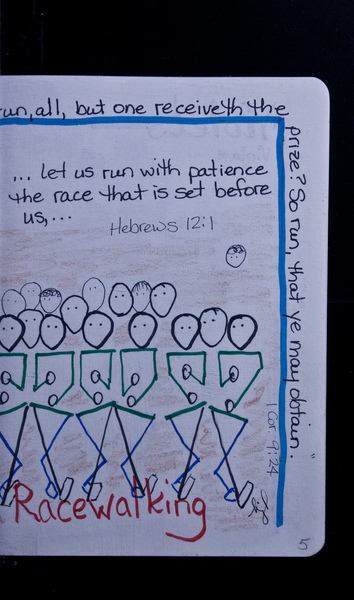 run, all, but one receiveth the
prize? So run, that ye may obtain."
1 Cor. 9:24
... let us run with patience
the race that is set before
us,...
Hebrews 12:1
Racewalking
5